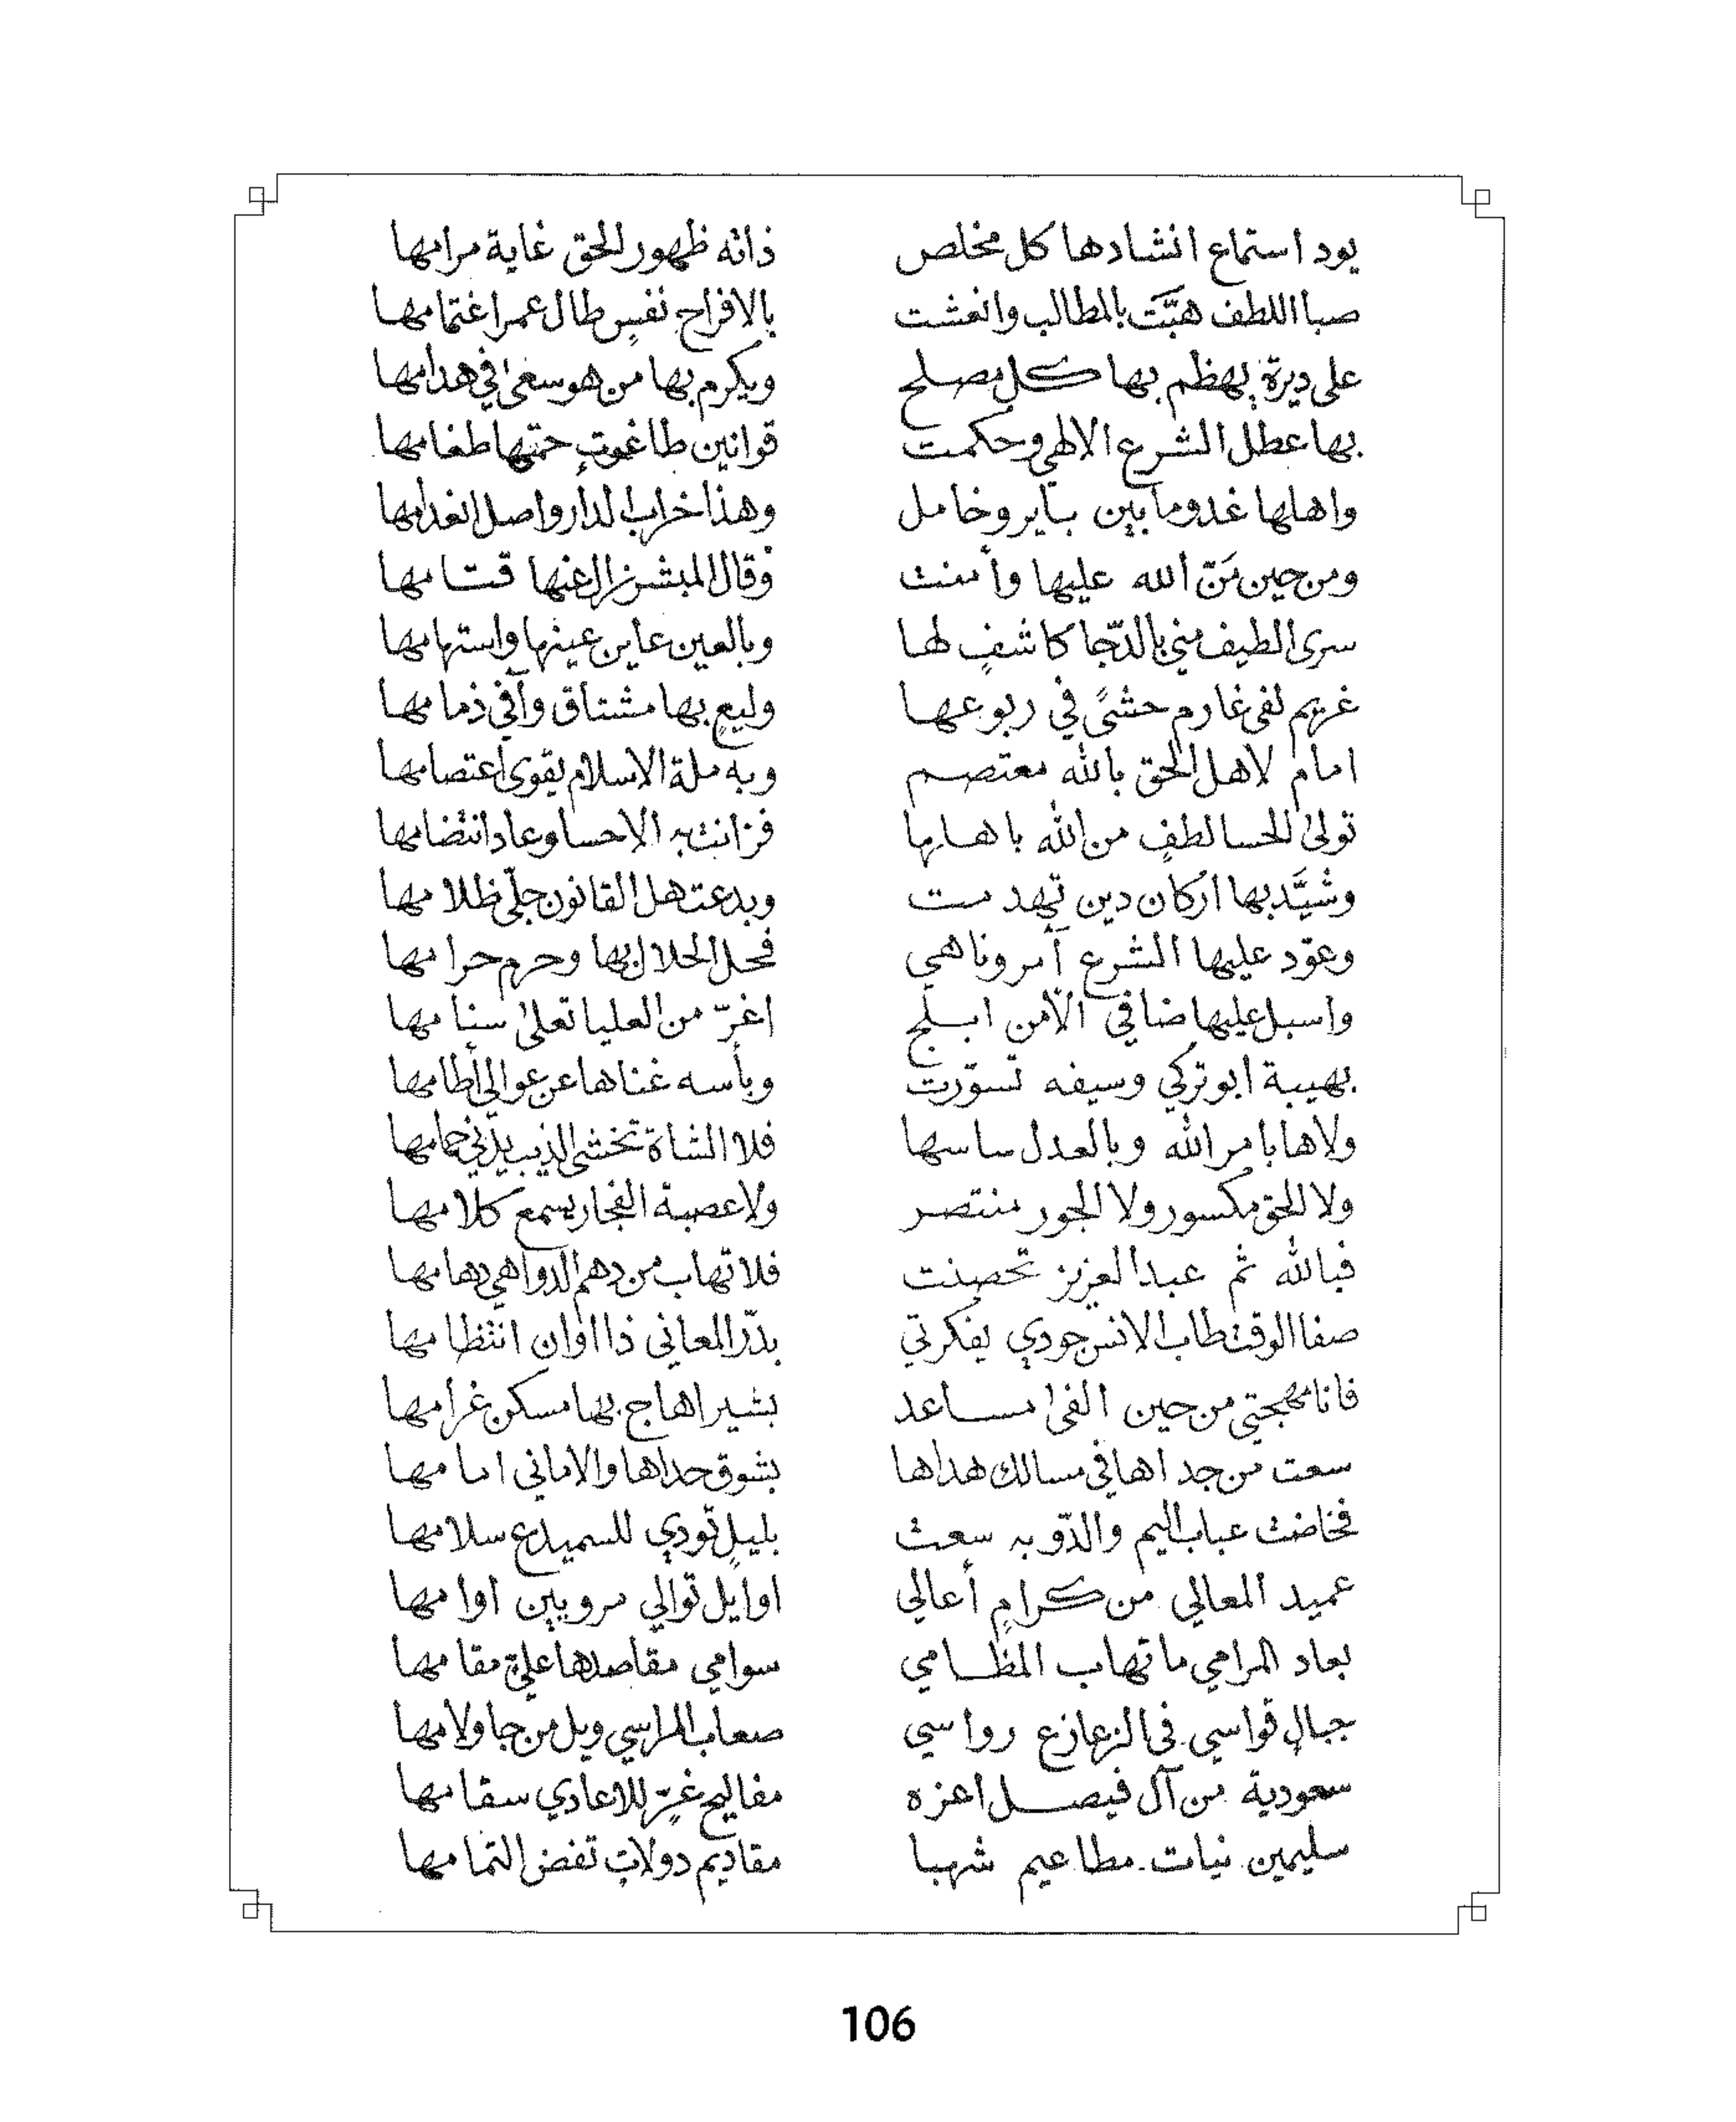 يود استماع انشادها كل مخلص ذاته ظهور الحق غاية مرامها
صبا اللطف هبَّت بالمطالب وانعشت بالافراح نفسٍ طال عمرا غتمامها
على ديرة يهظم بها كل مصلح ويكرم بها من هو سعىٰ في هدامها
بها عطل الشرع الالهي وحكمت قوانين طاغوتٍ حمتها طغامها
واهلها غدوما بين باير وخامل وهذا خراب الدار واصل انعدامها
ومن حين مَنّ الله عليها وأمنت وقال المبشر زال عنها قتامها
سرى الطيف مني بالدّجا كاشفٍ لها وبالعين عاين عينها واستهامها
غريم لفى غارم حشىً في ربوعها وليعٍ بها مشتاق وآفي ذمامها
امام لاهل الحق بالله معتصم وبه ملة الاسلام يقوى اعتصامها
تولىٰ الحسا لطفٍ من الله باهلها فزانت به الاحسا وعاد انتضامها
وشيَّد بها اركان دين تهدمت وبدعت هل القانون جلّى ظلامها
وعوّد عليها الشرع آمر وناهي فحل الحلال بها وحرم حرامها
واسبل عليها ضافي الأمن ابلج اغرّ من العليا تعلىٰ سنامها
بهيبة ابو تركي وسيفه تسوّرت وبأسه غناها عن عوالي أطامها
ولاها بامر الله وبالعدل ساسها فلا الشاة تخشى الذيب يدّني حمامها
ولا الحق مكسور ولا الجور منتصر ولا عصبة الفجار يسمع كلامها
فبالله ثم عبد العزيز تحصنت فلا تهاب من دهم الدواهي دهامها
صفا الوقت طاب الانس جودي يفكرتي بدّر المعاني ذا اوان انتظامها
فانا مهجتي من حين الفىٰ مساعد بشير اهاج بها مسكن غرامها
سعت من جداها في مسالك هداها بشوق حداها والاماني امامها
فخاضت عباب اليم والدّو به سعت بليلٍ تودي للسميدع سلامها
عميد المعالي من كرامٍ أعالي اوايل توالي مرويين اوامها
بعاد المرامي ما تهاب المظامي سوامي مقاصدها عليّ مقامها
جبالٍ قواسي في الزعازع رواسي صعاب المراسي ويل من جا ولامها
سعودية من آل فيصل اعزه مفاليح غرٍّ للاعادي سقامها
سليمين نيات مطاعيم شهبا مقاديم دولات تفض التمامها
106